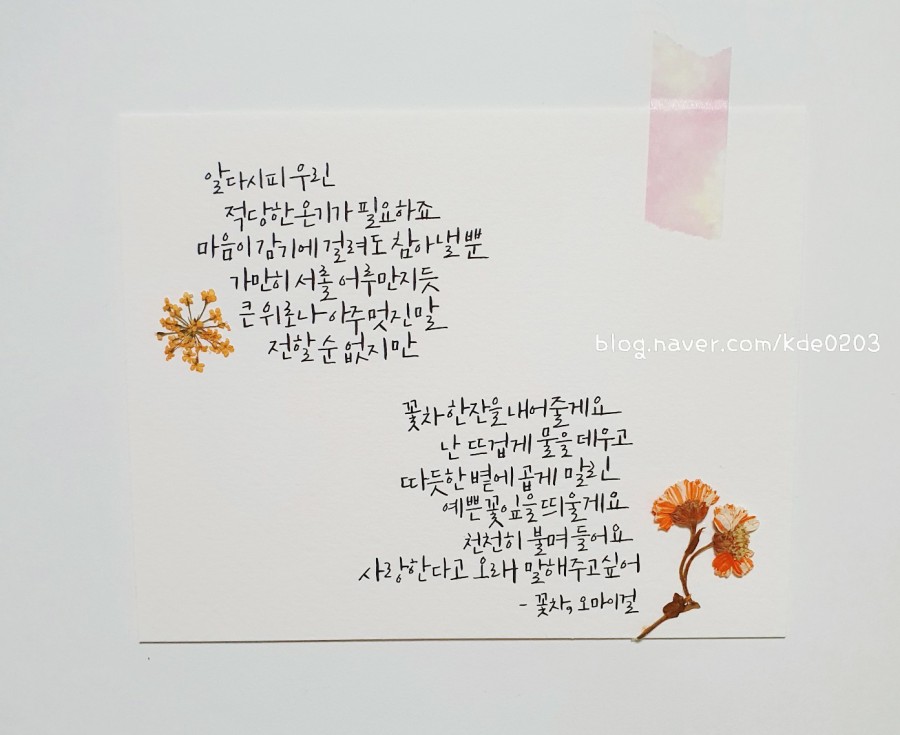 알다시피 우린
적당한 온기가 필요하죠
마음이 감기에 걸려도 참아낼 뿐
가만히 서롤 어루만지듯
큰 위로나 아주 멋진 말
전할 순 없지만
blog.naver.com/kde0203
꽃차 한잔을 내어줄게요
난 뜨겁게 물을 데우고
따듯한 볕에 곱게 말린
예쁜 꽃잎을 띄울게요
천천히 불며 들어요
사랑한다고 오래 말해주고 싶어
- 꽃차, 오마이걸